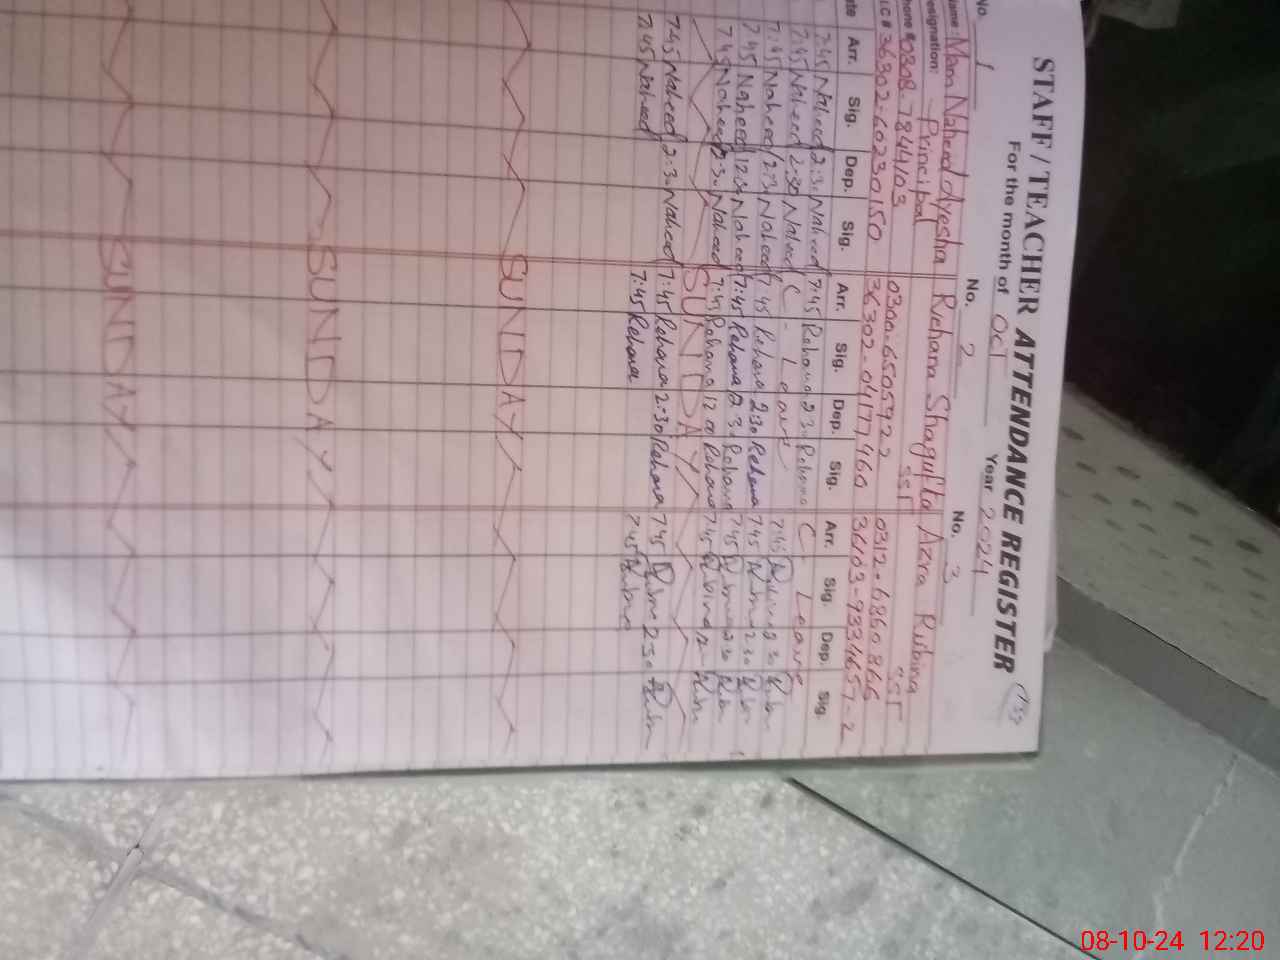 STAFF / TEACHER ATTENDANCE REGISTER
For the month of Oct Year 2024
No. 1 No. 2 No. 3
Name: Mam Naheid Ayesha Rehana Shagufta Azra Rubina
Designation: Principal SST SST
Phone # 0308-7844103 0300-6505922 0312-6860866
IC # 36302-6023015 0 36302-0417746 0
Date Arr. Sig. Dep. Sig. Arr. Sig. Dep. Sig. Arr. Sig. Dep. Sig.
7:45 Naheed 2:30 Naheed 7:45 Rehana 2 30 Rehana C Leave
7:45 Naheed 2:30 Naheed C - Leave 7:45 Rubina 2 30 Rubi
7:45 Naheed 12:30 Naheed 7:45 Rehana 2:30 Rehana 7 45
7 45 Naheed 12:30 Naheed 7:45 Rehana 12 30 Rehana 7 45
7 45 Naheed 2:30 Naheed 7:45 Rehana 12 00 Rehana 7 45 Rubina
SUNDAY
7:45 Naheed 2:30 Naheed 7:45 Rehana 2:30 Rehana 7 45 2 30
7 45 Naheed 7:45 Rehana 7 45
SUNDAY
SUNDAY
SUNDAY
08-10-24 12:20